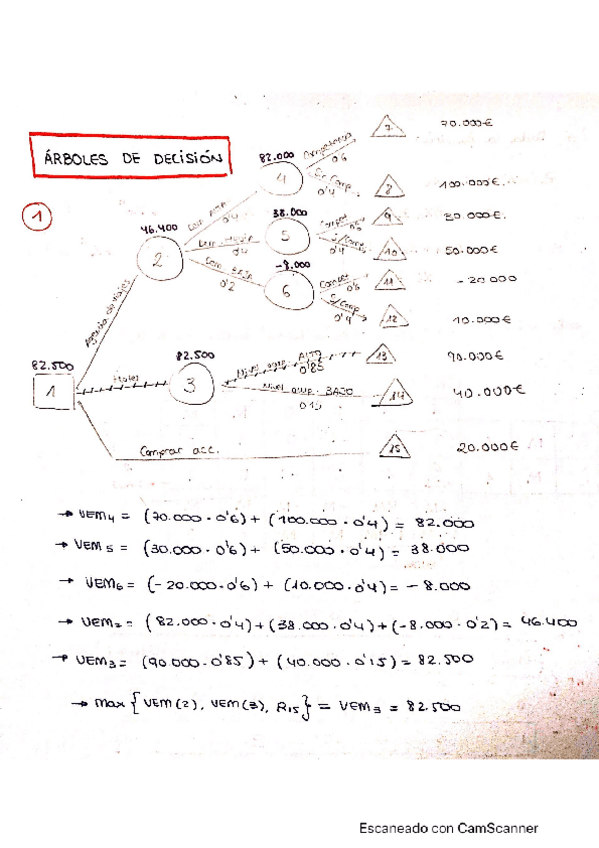 ÁRBOLES DE DECISIÓN
1
82.000
4
Competencia
0'6
7
70.000€
S/ Comp.
0'4
8
100.000€.
46.400
2
0'4
38.000
5
9
30.000€.
0'4
S/Comp
0'4
10
50.000€
0'2
-8.000
6
Compet
0'6
11
- 20 000
S/Comp
0'4
12
10.000€
Agencia de viajes
82.500
1
Hotel
82.500
3
Nivel ocup. ALTO
0'85
13
90.000€
Nivel ocup. BAJO
0'15
14
40.000€
Comprar acc.
15
20.000€
→ VEM4 = (70.000 · 0'6) + (100.000 · 0'4) = 82.000
→ VEM5 = (30.000 · 0'6) + (50.000 · 0'4) = 38.000
→ VEM6 = (-20.000·0'6) + (10.000·0'4) = - 8.000
→ VEM2 = (82.000·0'4)+(38.000·0'4)+(-8.000·0'2) = 46.400
→ VEM3 = (90.000·0'85) + (40.000·0'15) = 82.500
→ max {VEM(2), VEM(3), R15} = VEM3 = 82.500
Escaneado con CamScanner